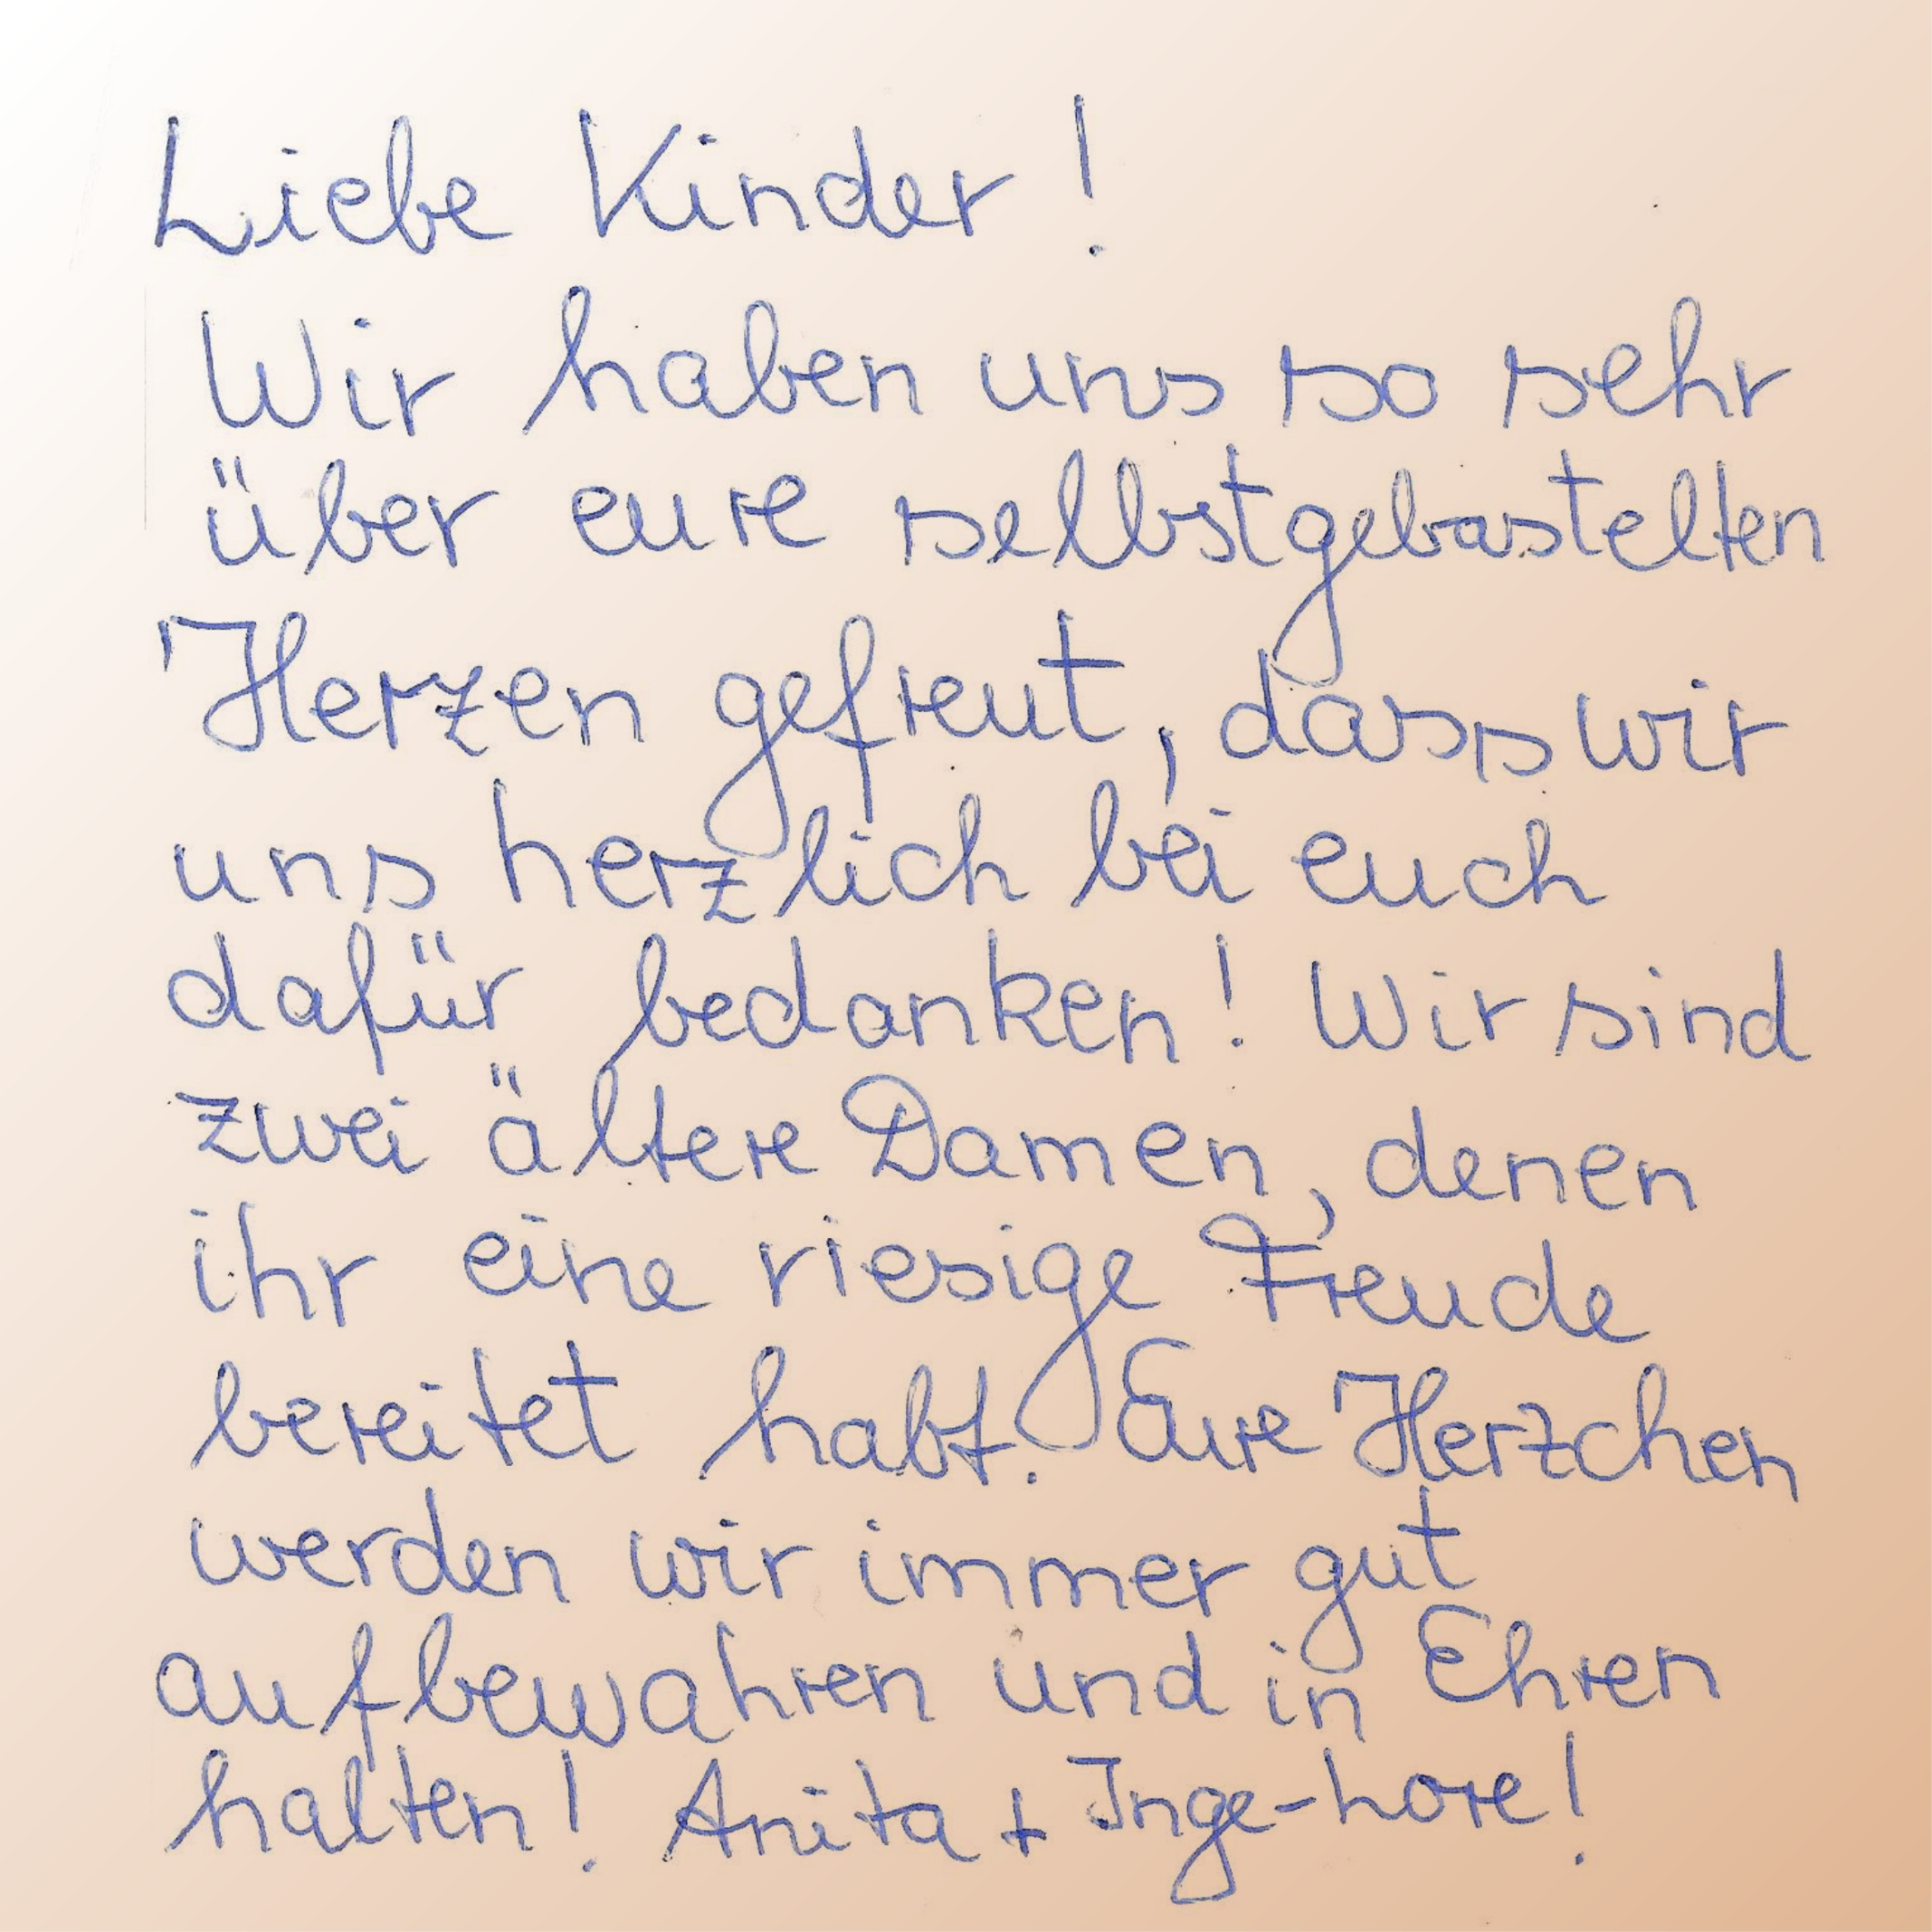 Liebe Kinder!
Wir haben uns so sehr
über eure selbstgebastelten
Herzen gefreut, dass wir
uns herzlich bei euch
dafür bedanken! Wir sind
zwei ältere Damen, denen
ihr eine riesige Freude
bereitet habt. Eure Herzchen
werden wir immer gut
aufbewahren und in Ehren
halten! Anita + Inge-Lore!